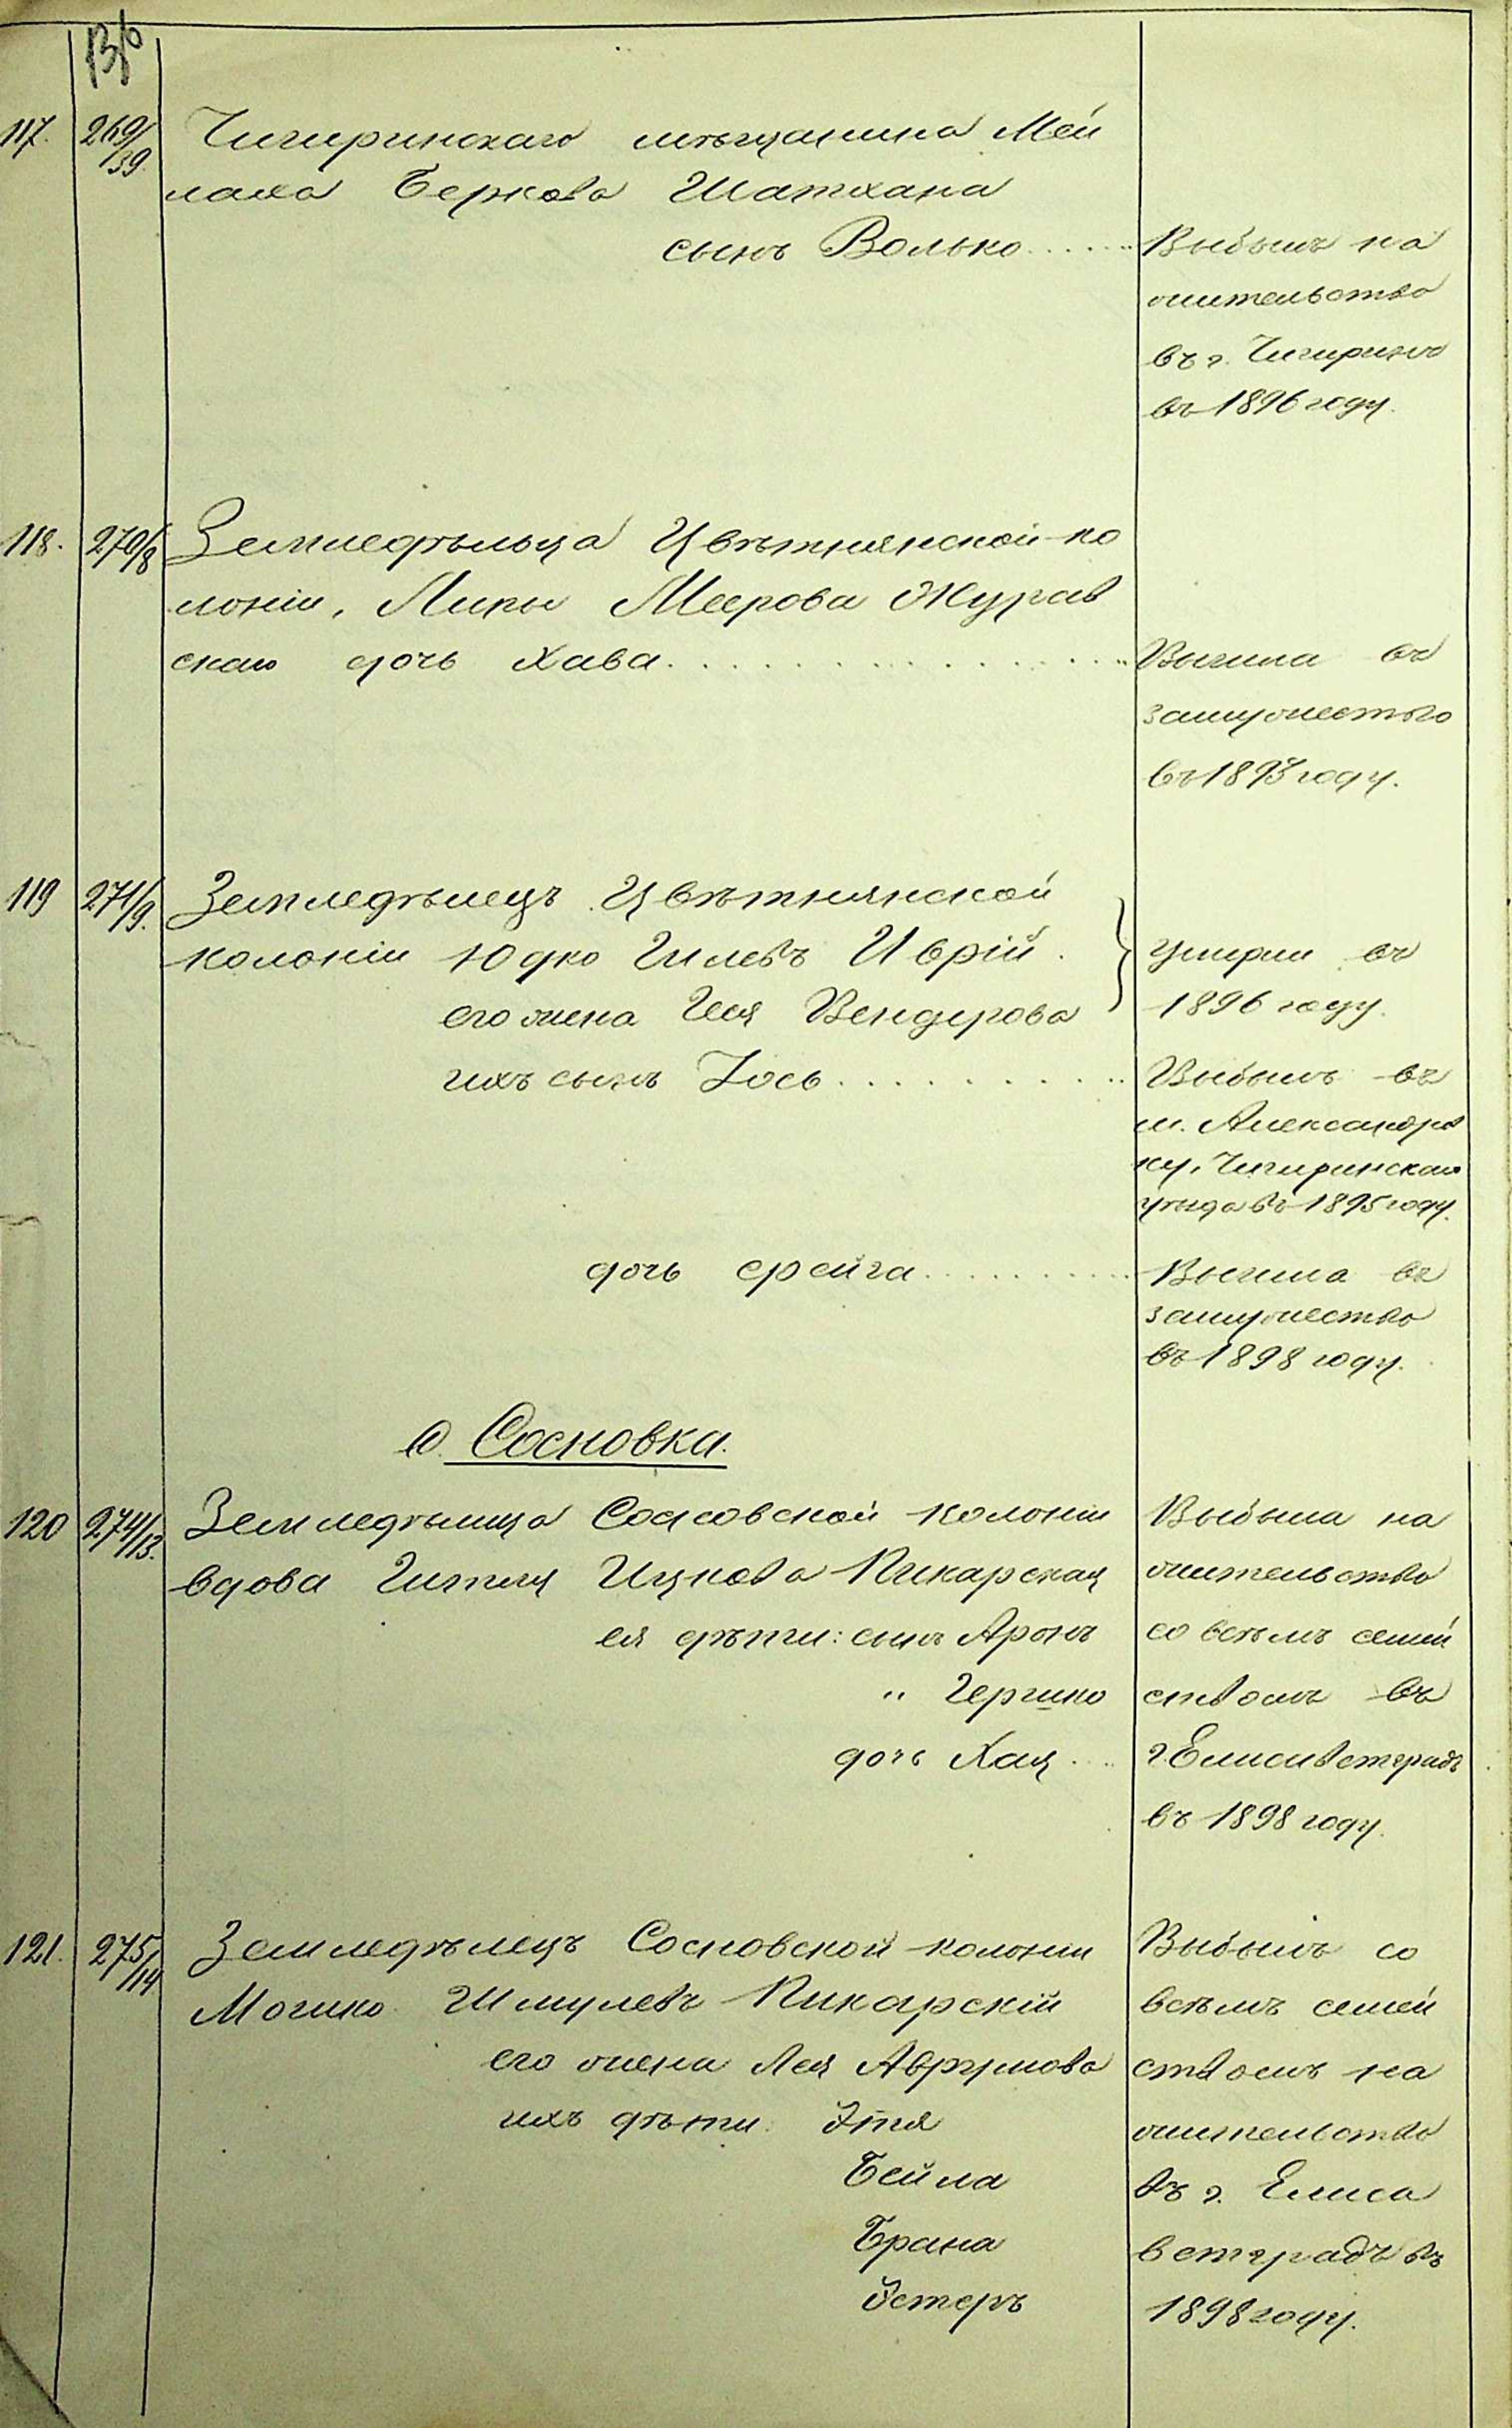 117. 269/39 Чигиринскаго мѣщанина Мей
лаха Беркова Шатхана
сынъ Волько...... Выбылъ на
жительство
въ г. Чигиринъ
въ 1896 году.
118. 270/8 Земледѣльца Цвѣтнянской ко
лоніи, Липы Меерова Журав
скаго дочь Хава. Вышла въ
замужество
въ 1893 году.
119 271/9. Земледѣлецъ Цвѣтнянской
колоніи Юдко Гилевъ Иврій.
его жена Геня Вендерова
Умерли въ
1896 году.
ихъ сынъ Іось. Выбылъ въ
м. Александров
ку, Чигиринскаго
уѣзда въ 1895 году.
дочь Фрейга. Вышла въ
замужество
въ 1898 году.
С. Сосновка.
120 274/13. Земледѣлица Сосновской колоніи Выбыла на
вдова Гитля Ицкова Пикарская жительство
ея дѣти: сынъ Аронъ со всѣмъ семей
" Гершко ствомъ въ
дочь Хая.... г. Елисаветградъ
въ 1898 году.
121. 275/14 Земледѣлецъ Сосновской колоніи Выбылъ со
Мошко Шмулевъ Пикарскій всѣмъ семей
его жена Лея Аврумова ствомъ на
ихъ дѣти: Этя жительство
Бейла въ г. Елиса
Брана ветградъ въ
Эстеръ 1898 году.